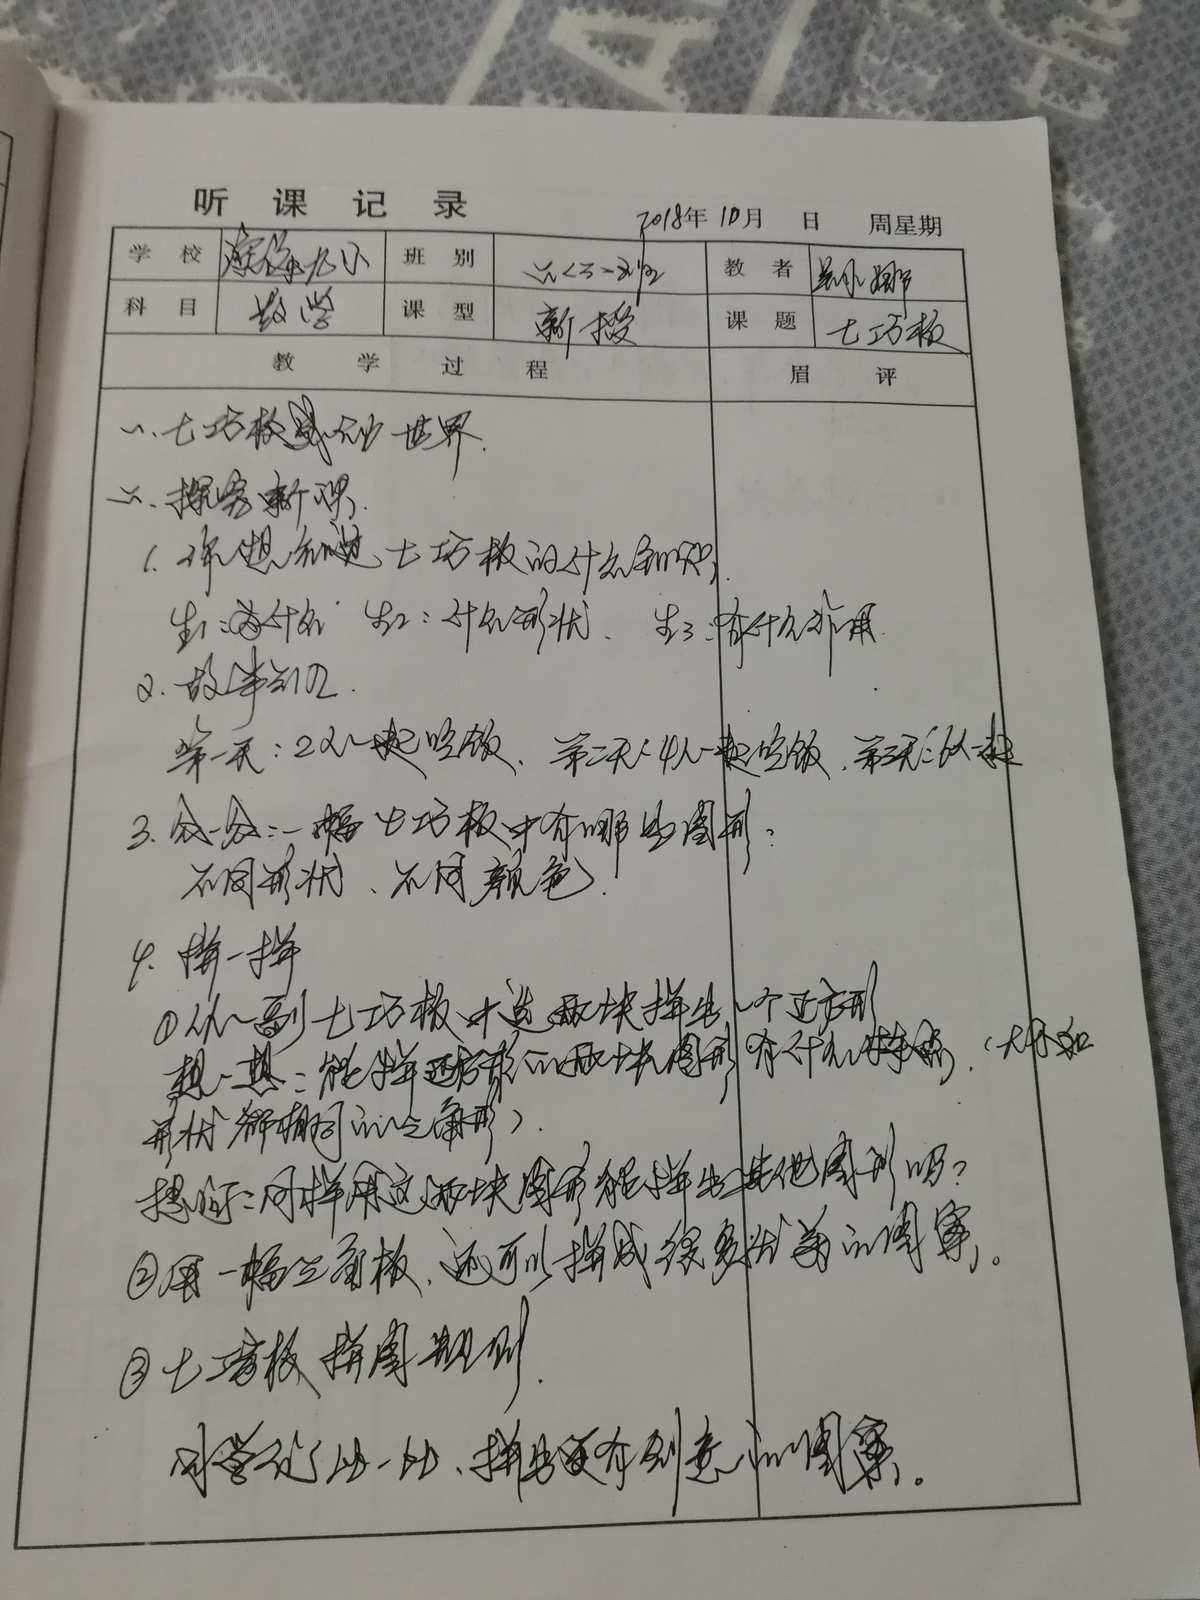 听课记录
2018年10月 日 周星期
学校 九小 班别 教者 娜
科目 数学 课型 新授 课题 七巧板
教学过程 眉评
一、七巧板 世界.
二、探索新课.
1. 你想知道七巧板的什么知识.
生1:为什么 生2:什么形状、生3:有什么作用.
2. 故事引入.
第一天:2人一起吃饭、第二天:4人一起吃饭、第三天:
3. 分一分:一幅七巧板中有哪些图形?
不同形状、不同颜色.
4. 拼一拼
①从一副七巧板中选两块拼出一个正方形
想一想:能拼正方形的两块图形有什么特点.(大小和
形状都相同的三角形).
想一想:同样用这两块图形能拼出其他图形吗?
②用一幅三角板、还可以拼成很多优美的图案。
③七巧板拼图规则.
同学们比一比、拼出更有创意的图案。